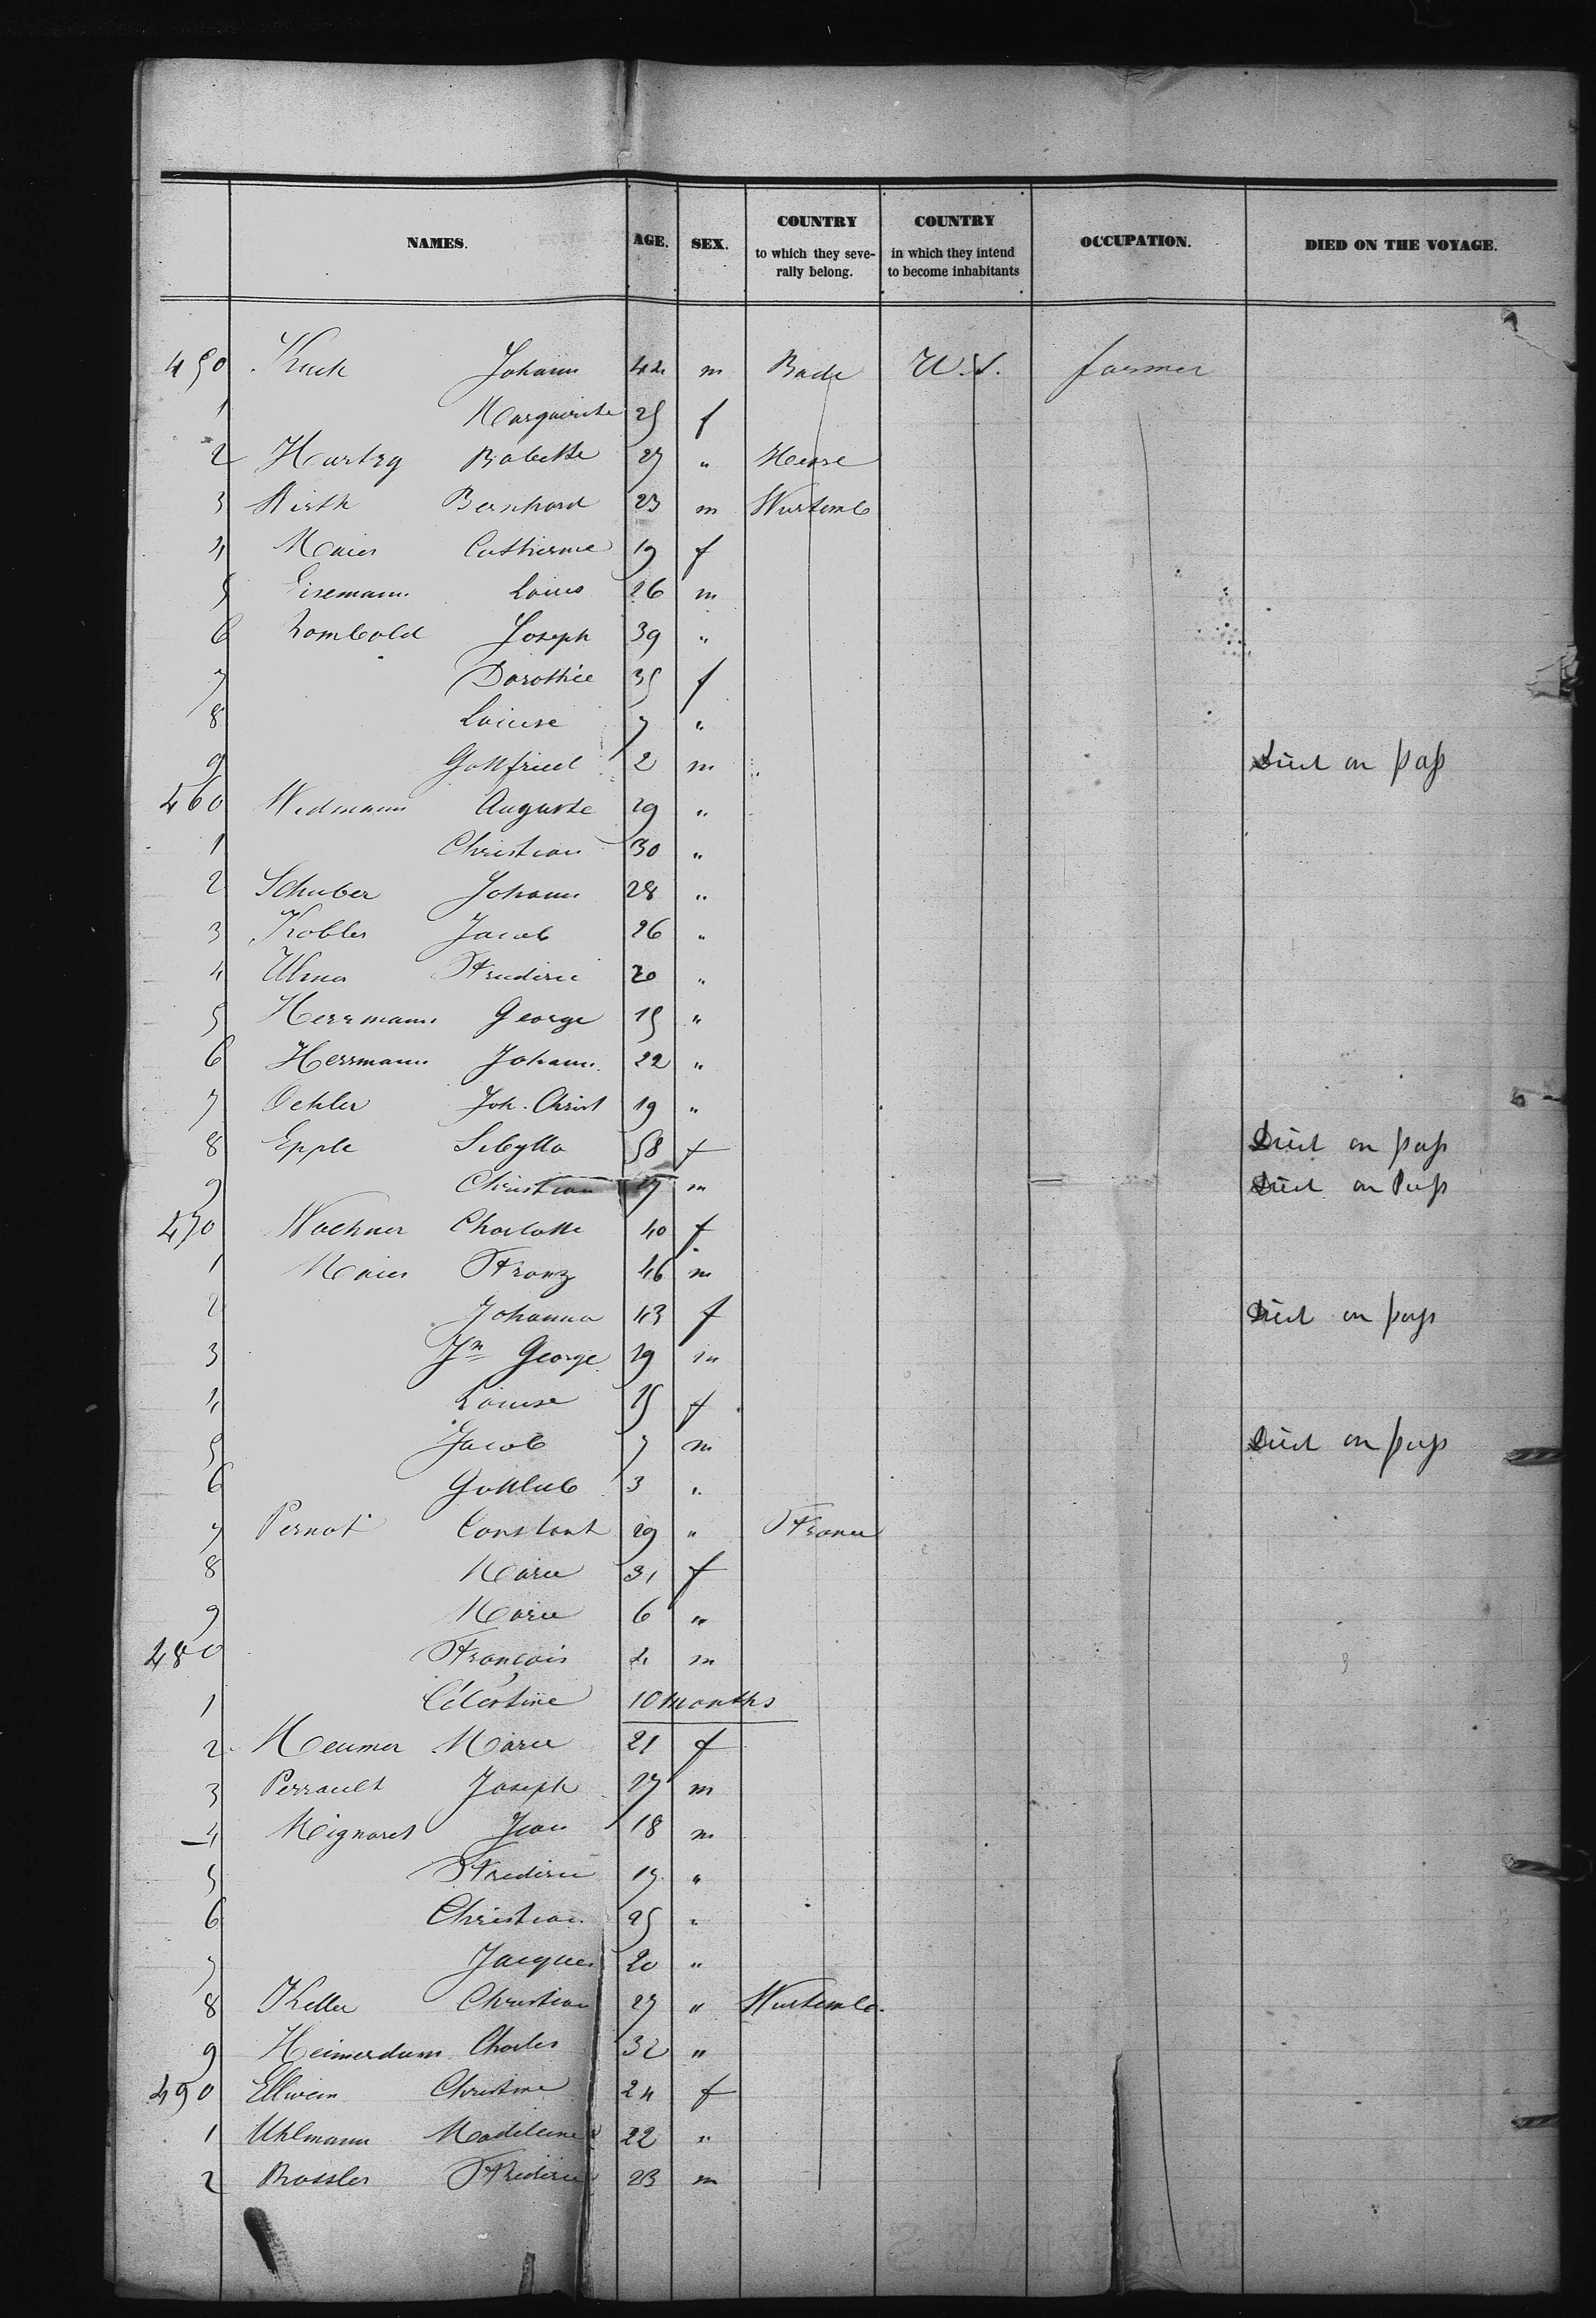 NAMES. AGE. SEX. COUNTRY to which they seve-rally belong. COUNTRY in which they intend to become inhabitants OCCUPATION. DIED ON THE VOYAGE.
450 Kuck Johann 42 m Bade U.S. farmer
1 Marguerite 25 f
2 Hartzg Babette 27 " Hesse
3 Wirth Bernhard 23 m Wurtemb
4 Maier Catherine 19 f
5 Eisemann Louis 26 m
6 Rombold Joseph 39 "
7 Dorothée 35 f
8 Louise 7 "
9 Gottfried 2 m Died on pass
460 Widmann Auguste 29 "
1 Christian 30 "
2 Schuber Johann 28 "
3 Kobler Jacob 26 "
4 Ulmer Frederic 20 "
5 Herrmann George 15 "
6 Herrmann Johann 22 "
7 Oehler Joh. Christ 19 "
8 Epple Sibylla 58 f Died on pass
9 Christian 17 m Died on Pass
470 Wochner Charlotte 40 f
1 Maier Franz 46 m
2 Johanna 43 f Died on pass
3 Jn George 19 m
4 Louise 15 f
5 Jacob 7 m Died on pass
6 Gottlieb 3 "
7 Pernot Constant 29 " France
8 Marie 31 f
9 Marie 6 "
480 François 4 m
1 Célestine 10 months
2 Meumer Marie 21 f
3 Perrault Joseph 27 m
4 Mignaret Jean 18 m
5 Frederic 17 "
6 Christian 25 "
7 Jacques 20 "
8 Keller Christian 27 " Wurtemb.
9 Heimerdum Charles 32 "
490 Ellwein Christine 24 f
1 Uhlmann Madeleine 22 "
2 Bossler Frederic 23 m